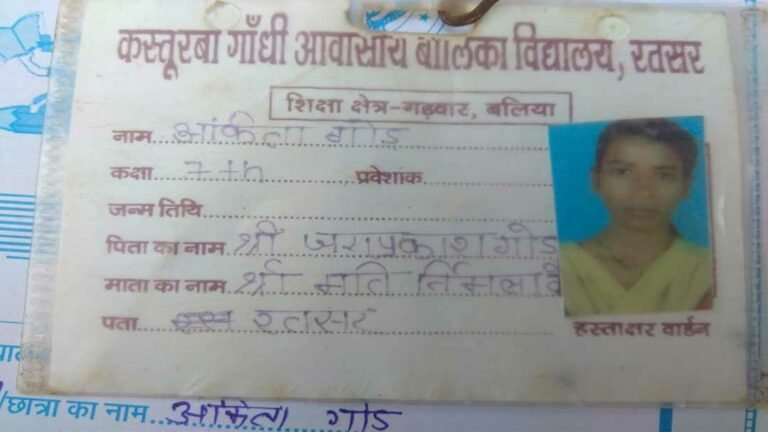 कस्तूरबा गाँधी आवासीय बालिका विद्यालय, रतसर
शिक्षा क्षेत्र-गड़वार, बलिया
नाम आंकिता गोड
कक्षा 7th प्रवेशांक
जन्म तिथि
पिता का नाम श्री जयप्रकाश गोड
माता का नाम श्री मति र्निमला
पता रतसर
हस्ताक्षर वार्डन
/छात्रा का नाम आंकिता गोड